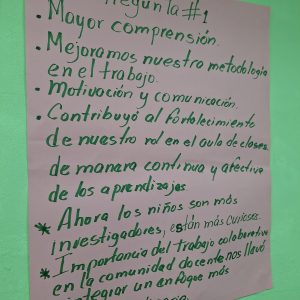 Pregunta #1
. Mayor comprensión.
. Mejoramos nuestra metodología
en el trabajo.
. Motivación y comunicación.
. Contribuyó al fortalecimiento
de nuestro rol en el aula de clases.
de manara continua y afectiva
de los aprendizajes
* Ahora los niños son más
investigadores, están más curiosos.
* Importancia del trabajo colaborativo
en la comunidad docente nos llevó
integrar un enfoque más